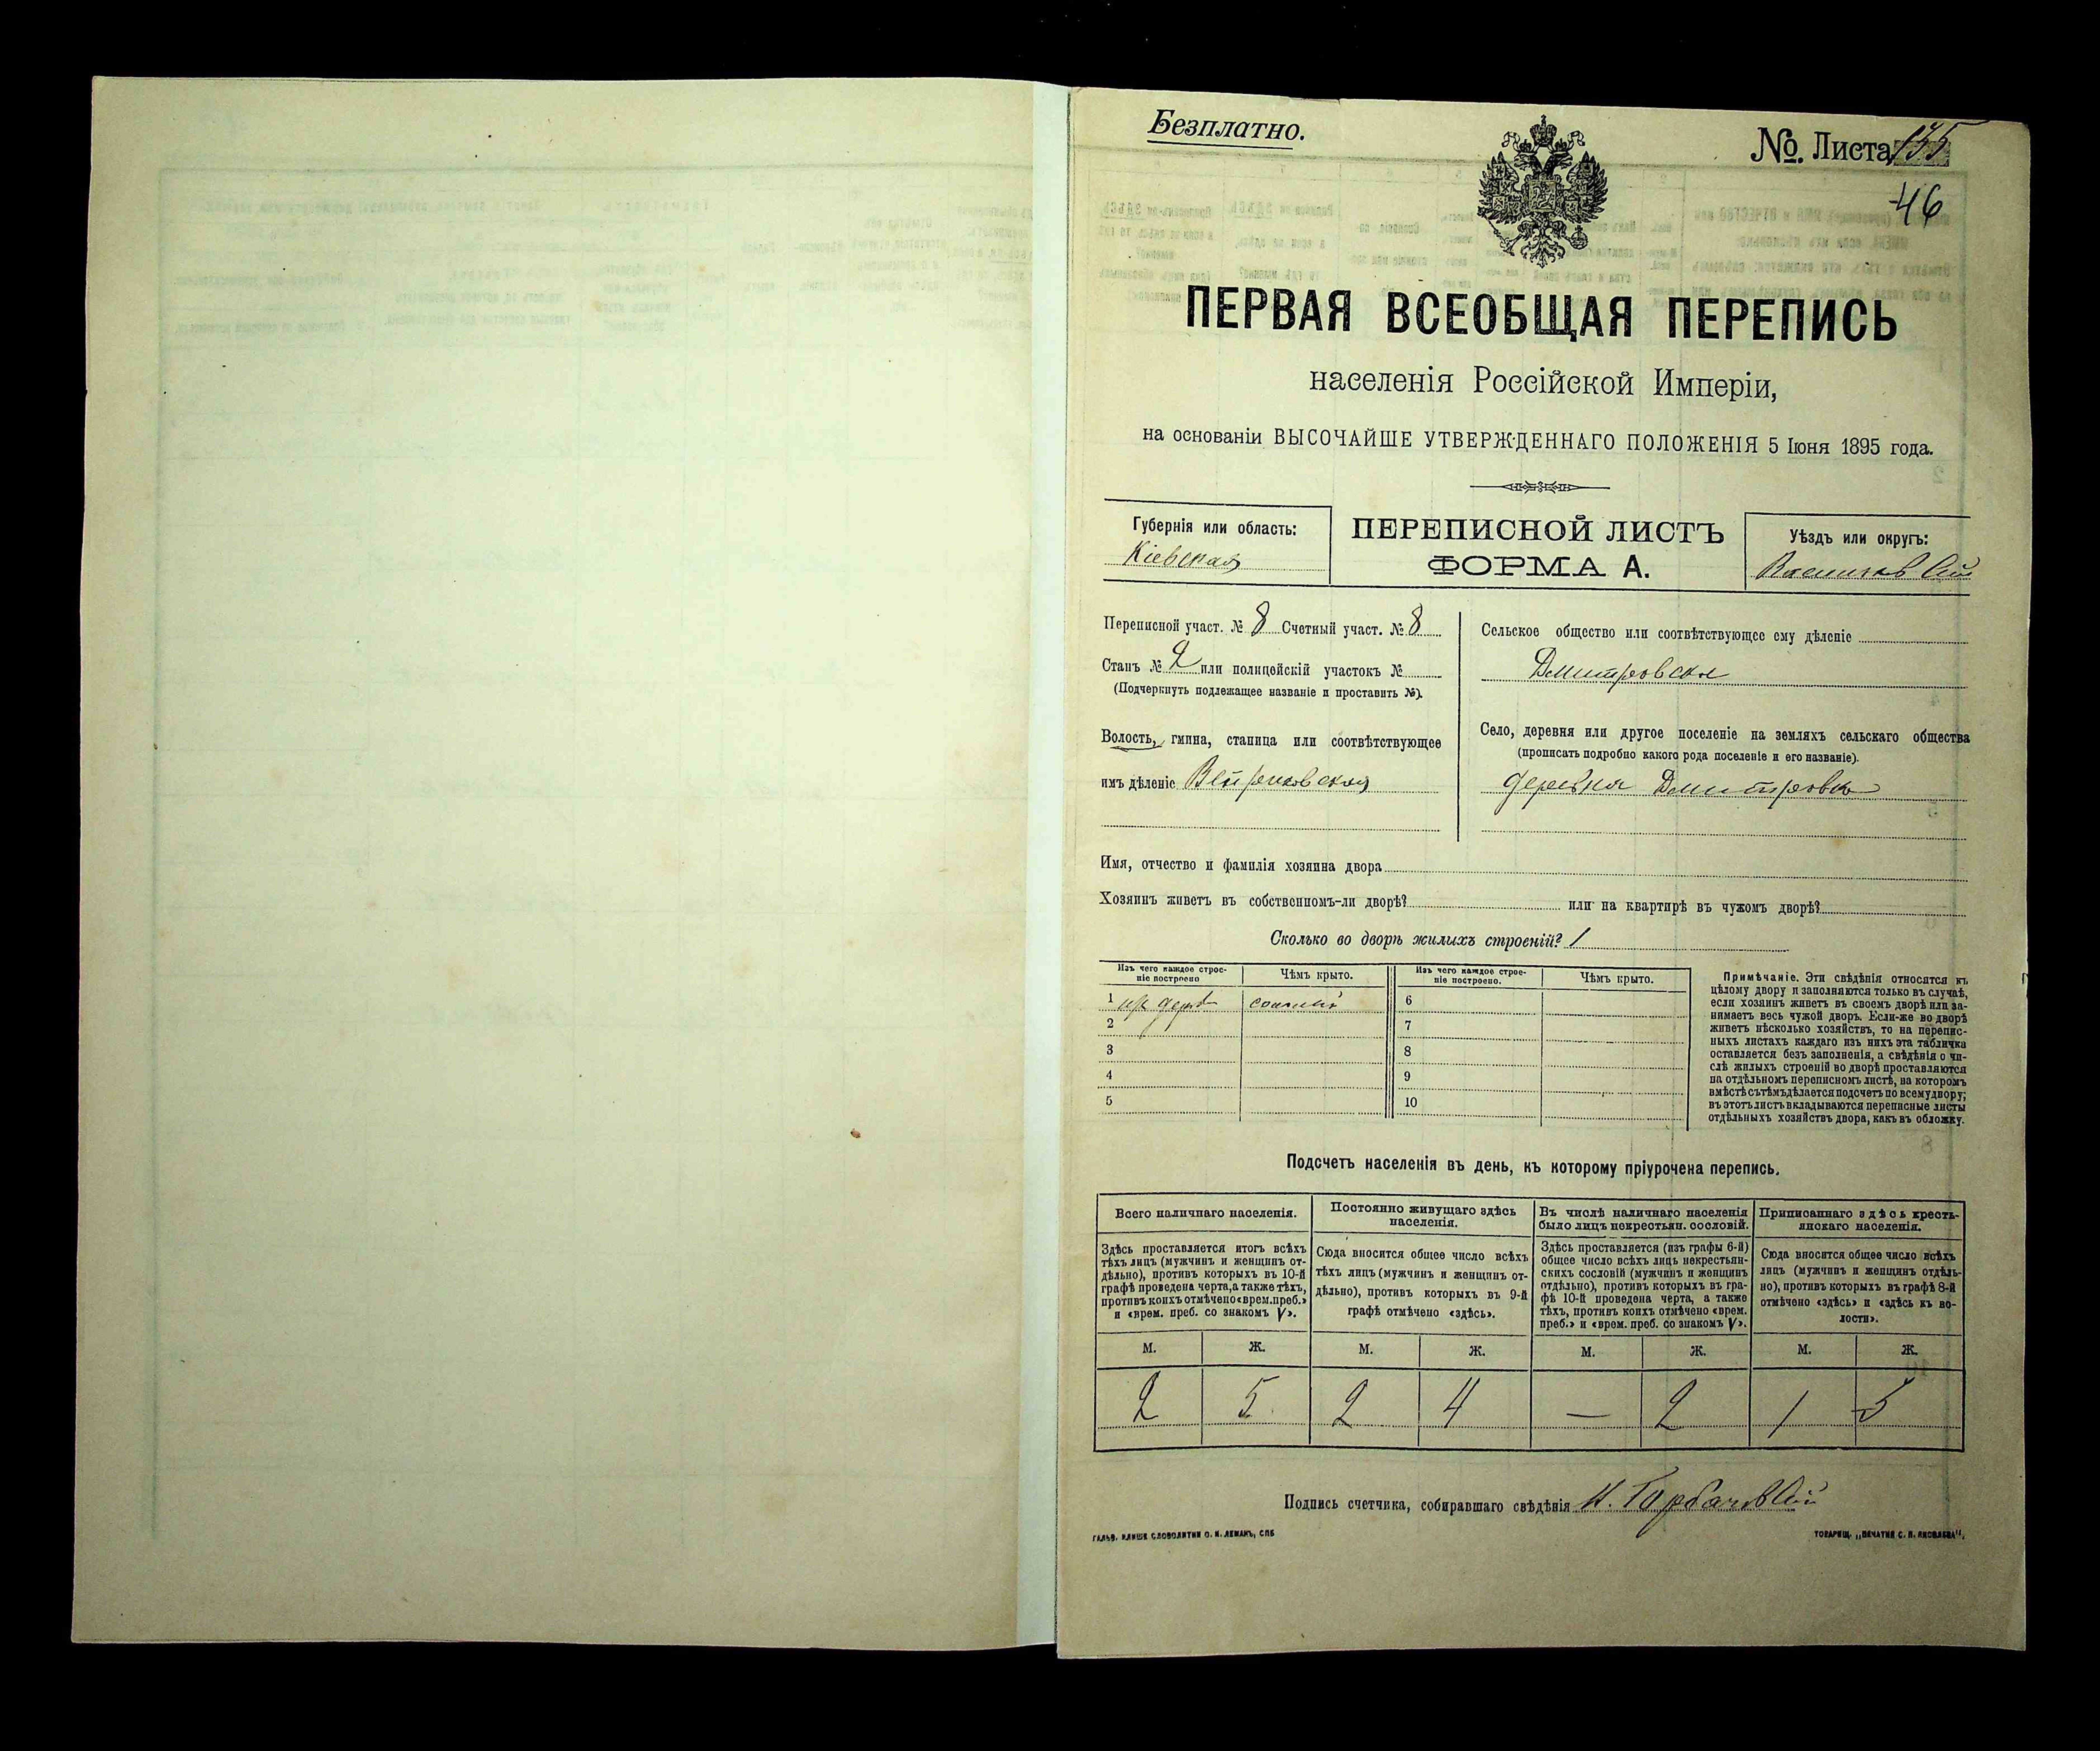 Безплатно.
№. Листа 135
46
ПЕРВАЯ ВСЕОБЩАЯ ПЕРЕПИСЬ
населенія Россійской Имперіи,
на основаніи ВЫСОЧАЙШЕ УТВЕРЖДЕННАГО ПОЛОЖЕНІЯ 5 Іюня 1895 года.
Губернія или область:
Кіевская
ПЕРЕПИСНОЙ ЛИСТЪ
ФОРМА А.
Уѣздъ или округъ:
Васильковскій
Переписной участ. № 8 Счетный участ. № 8
Станъ № 2 или полицейскій участокъ №
(Подчеркнуть подлежащее названіе и проставить №).
Волость, гмина, станица или соотвѣтствующее
имъ дѣленіе
Сельское общество или соотвѣтствующее ему дѣленіе
Дмитровское
Село, деревня или другое поселеніе на земляхъ сельскаго общества
(прописать подробно какого рода поселеніе и его названіе).
деревня Дмитровка
Имя, отчество и фамилія хозяина двора
Хозяинъ живетъ въ собственномъ-ли дворѣ? или на квартирѣ въ чужомъ дворѣ?
Сколько во дворѣ жилыхъ строеній? 1
Изъ чего каждое строе-
ніе построено
Чѣмъ крыто.
Изъ чего каждое строе-
ніе построено.
Чѣмъ крыто.
1 дерев соломой
2
3
4
5
6
7
8
9
10
Примѣчаніе. Эти свѣдѣнія относятся къ
цѣлому двору и заполняются только въ случаѣ,
если хозяинъ живетъ въ своемъ дворѣ или за-
нимаетъ весь чужой дворъ. Если-же во дворѣ
живетъ нѣсколько хозяйствъ, то на перепис-
ныхъ листахъ каждаго изъ нихъ эта табличка
оставляется безъ заполненія, а свѣдѣнія о чи-
слѣ жилыхъ строеній во дворѣ проставляются
на отдѣльномъ переписномъ листѣ, на которомъ
вмѣстѣ съ тѣмъ дѣлается подсчетъ по всему двору;
въ этотъ листъ вкладываются переписные листы
отдѣльныхъ хозяйствъ двора, какъ въ обложку.
Подсчетъ населенія въ день, къ которому пріурочена перепись.
Всего наличнаго населенія.
Постоянно живущаго здѣсь
населенія.
Въ числѣ наличнаго населенія
было лицъ некрестьян. сословій.
Приписаннаго здѣсь кресть-
янскаго населенія.
Здѣсь проставляется итогъ всѣхъ
тѣхъ лицъ (мужчинъ и женщинъ от-
дѣльно), противъ которыхъ въ 10-й
графѣ проведена черта, а также тѣхъ,
противъ коихъ отмѣчено «врем. преб.»
и «врем. преб. со знакомъ V».
Сюда вносится общее число всѣхъ
тѣхъ лицъ (мужчинъ и женщинъ от-
дѣльно), противъ которыхъ въ 9-й
графѣ отмѣчено «здѣсь».
Здѣсь проставляется (изъ графы 6-й)
общее число всѣхъ лицъ некрестьян-
скихъ сословій (мужчинъ и женщинъ
отдѣльно), противъ которыхъ въ гра-
фѣ 10-й проведена черта, а также
тѣхъ, противъ коихъ отмѣчено «врем.
преб.» и «врем. преб. со знакомъ V».
Сюда вносится общее число всѣхъ
лицъ (мужчинъ и женщинъ отдѣль-
но), противъ которыхъ въ графѣ 8-й
отмѣчено «здѣсь» и «здѣсь къ во-
лости».
М. Ж. М. Ж. М. Ж. М. Ж.
2 5 2 4 — 2 1 5
Подпись счетчика, собиравшаго свѣдѣнія Н. Горбачевскій
ГАЛЬВ. КЛИШЕ СЛОВОЛИТНИ О. И. ЛЕМАНЪ, СПБ
ТОВАРИЩ. „ПЕЧАТНЯ С. П. ЯКОВЛЕВА“.